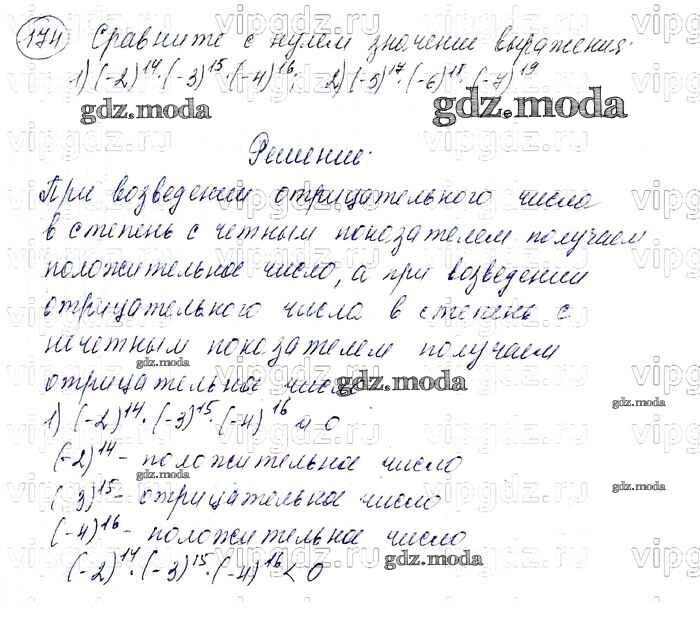 174 Сравните с нулем значение выражения:
1) (-2)¹⁴·(-3)¹⁵·(-4)¹⁶; 2) (-5)¹⁷·(-6)¹⁸·(-7)¹⁹
gdz.moda gdz.moda
Решение.
При возведении отрицательного числа
в степень с четным показателем получаем
положительное число, а при возведении
отрицательного числа в степень с
нечетным показателем получаем
gdz.moda
отрицательное число
gdz.moda
gdz.moda
1) (-2)¹⁴·(-3)¹⁵·(-4)¹⁶ и 0
(-2)¹⁴ - положительное число
gdz.moda
(-3)¹⁵ - отрицательное число
gdz.moda
(-4)¹⁶ - положительное число
gdz.moda
(-2)¹⁴·(-3)¹⁵·(-4)¹⁶ < 0
vipgdz.ru